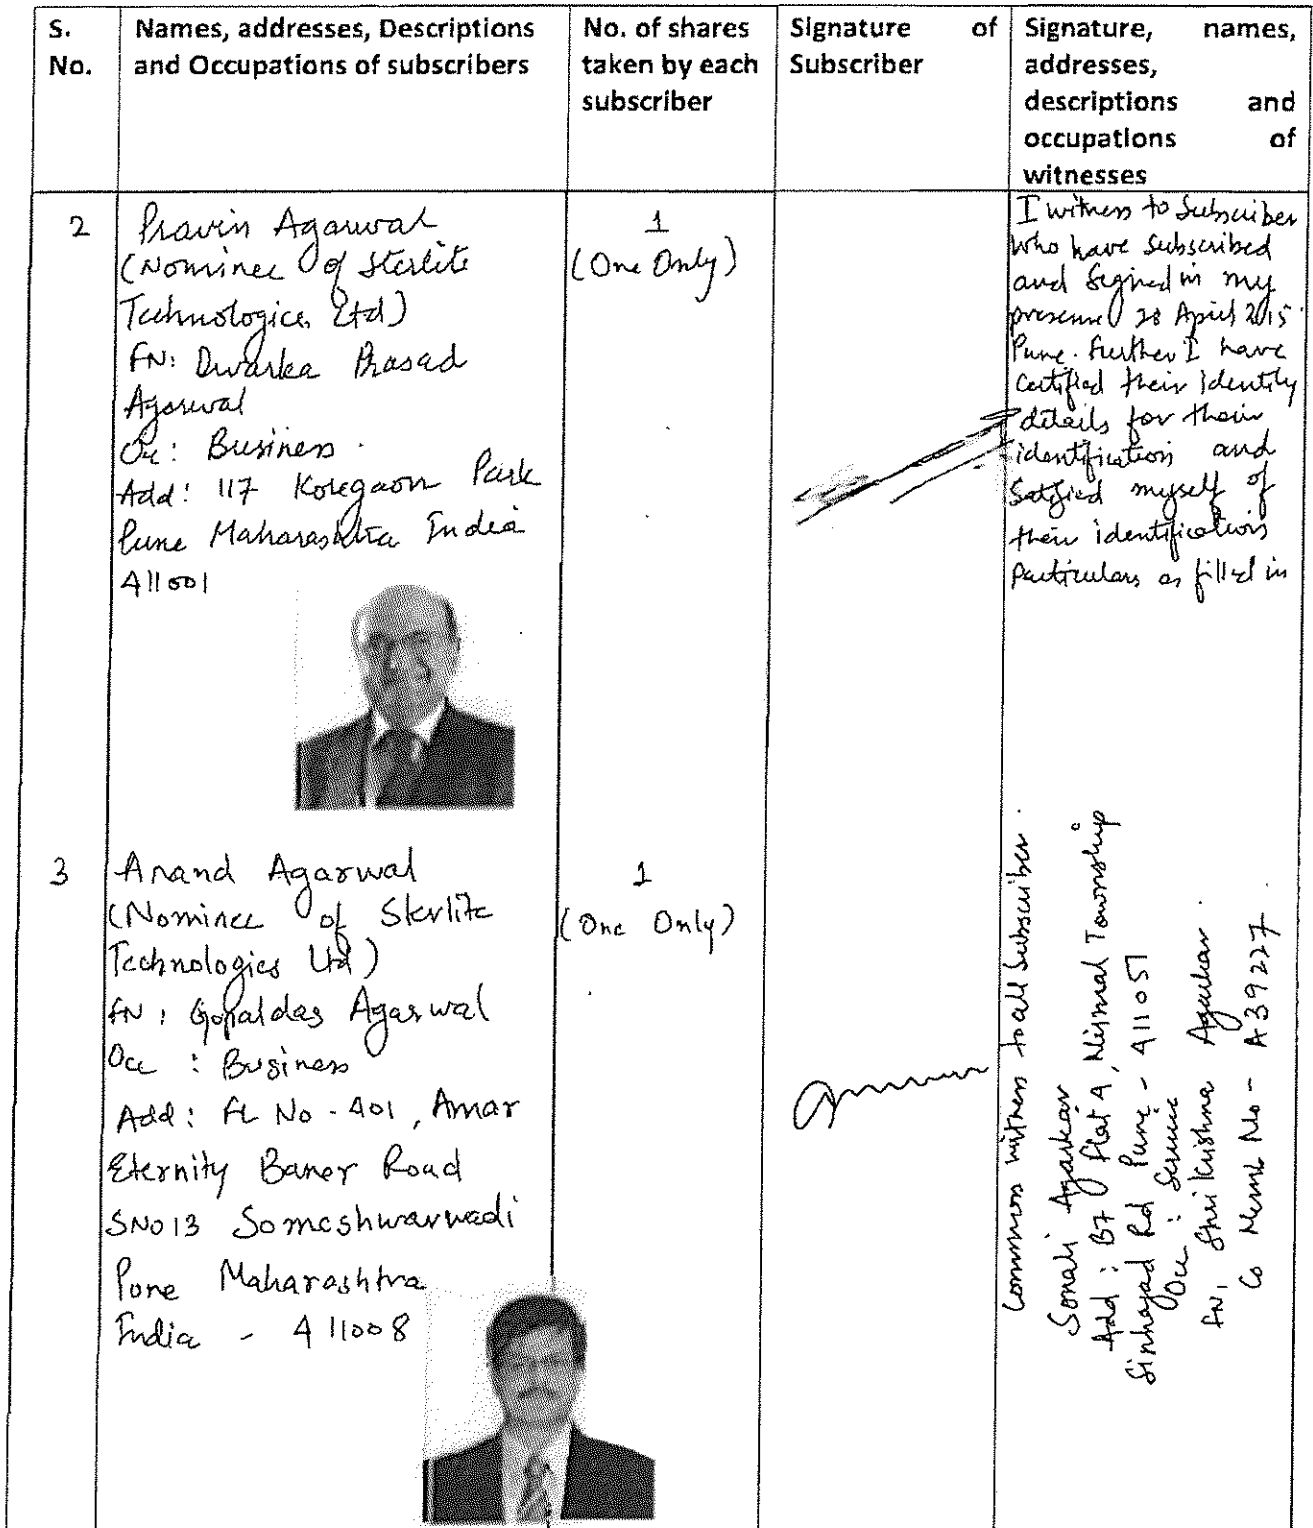 S. No.
Names, addresses, Descriptions
and Occupations of subscribers
No. of shares
taken by each
subscriber
Signature of
Subscriber
Signature, names,
addresses,
descriptions and
occupations of
witnesses
2
Pravin Agarwal
(Nominee of Sterlite
Technologies Ltd)
FN: Dwarka Prasad
Agarwal
Occ: Business.
Add: 117 Koregaon Park
Pune Maharashtra India
411001
1
(One Only)
I witness to Subscriber
who have subscribed
and Signed in my
presence 28 April 2015
Pune. Further I have
certified their identity
details for their
identification and
Satisfied myself of
their identifications
Particulars as filled in
3
Anand Agarwal
(Nominee of Sterlite
Technologies Ltd)
FN: Gopaldas Agarwal
Occ : Business
Add: FL No - 401, Amar
Eternity Baner Road
SNo 13 Someshwarwadi
Pune Maharashtra
India - 411008
1
(One Only)
Common witness to all Subscriber.
Sonali Agarkar
Add : B7 Flat 9, Nirmal Township
Sinhagad Rd Pune - 411051
Occ : Service
FN: Shri Krishna Agarkar.
Co Memb No - A39227